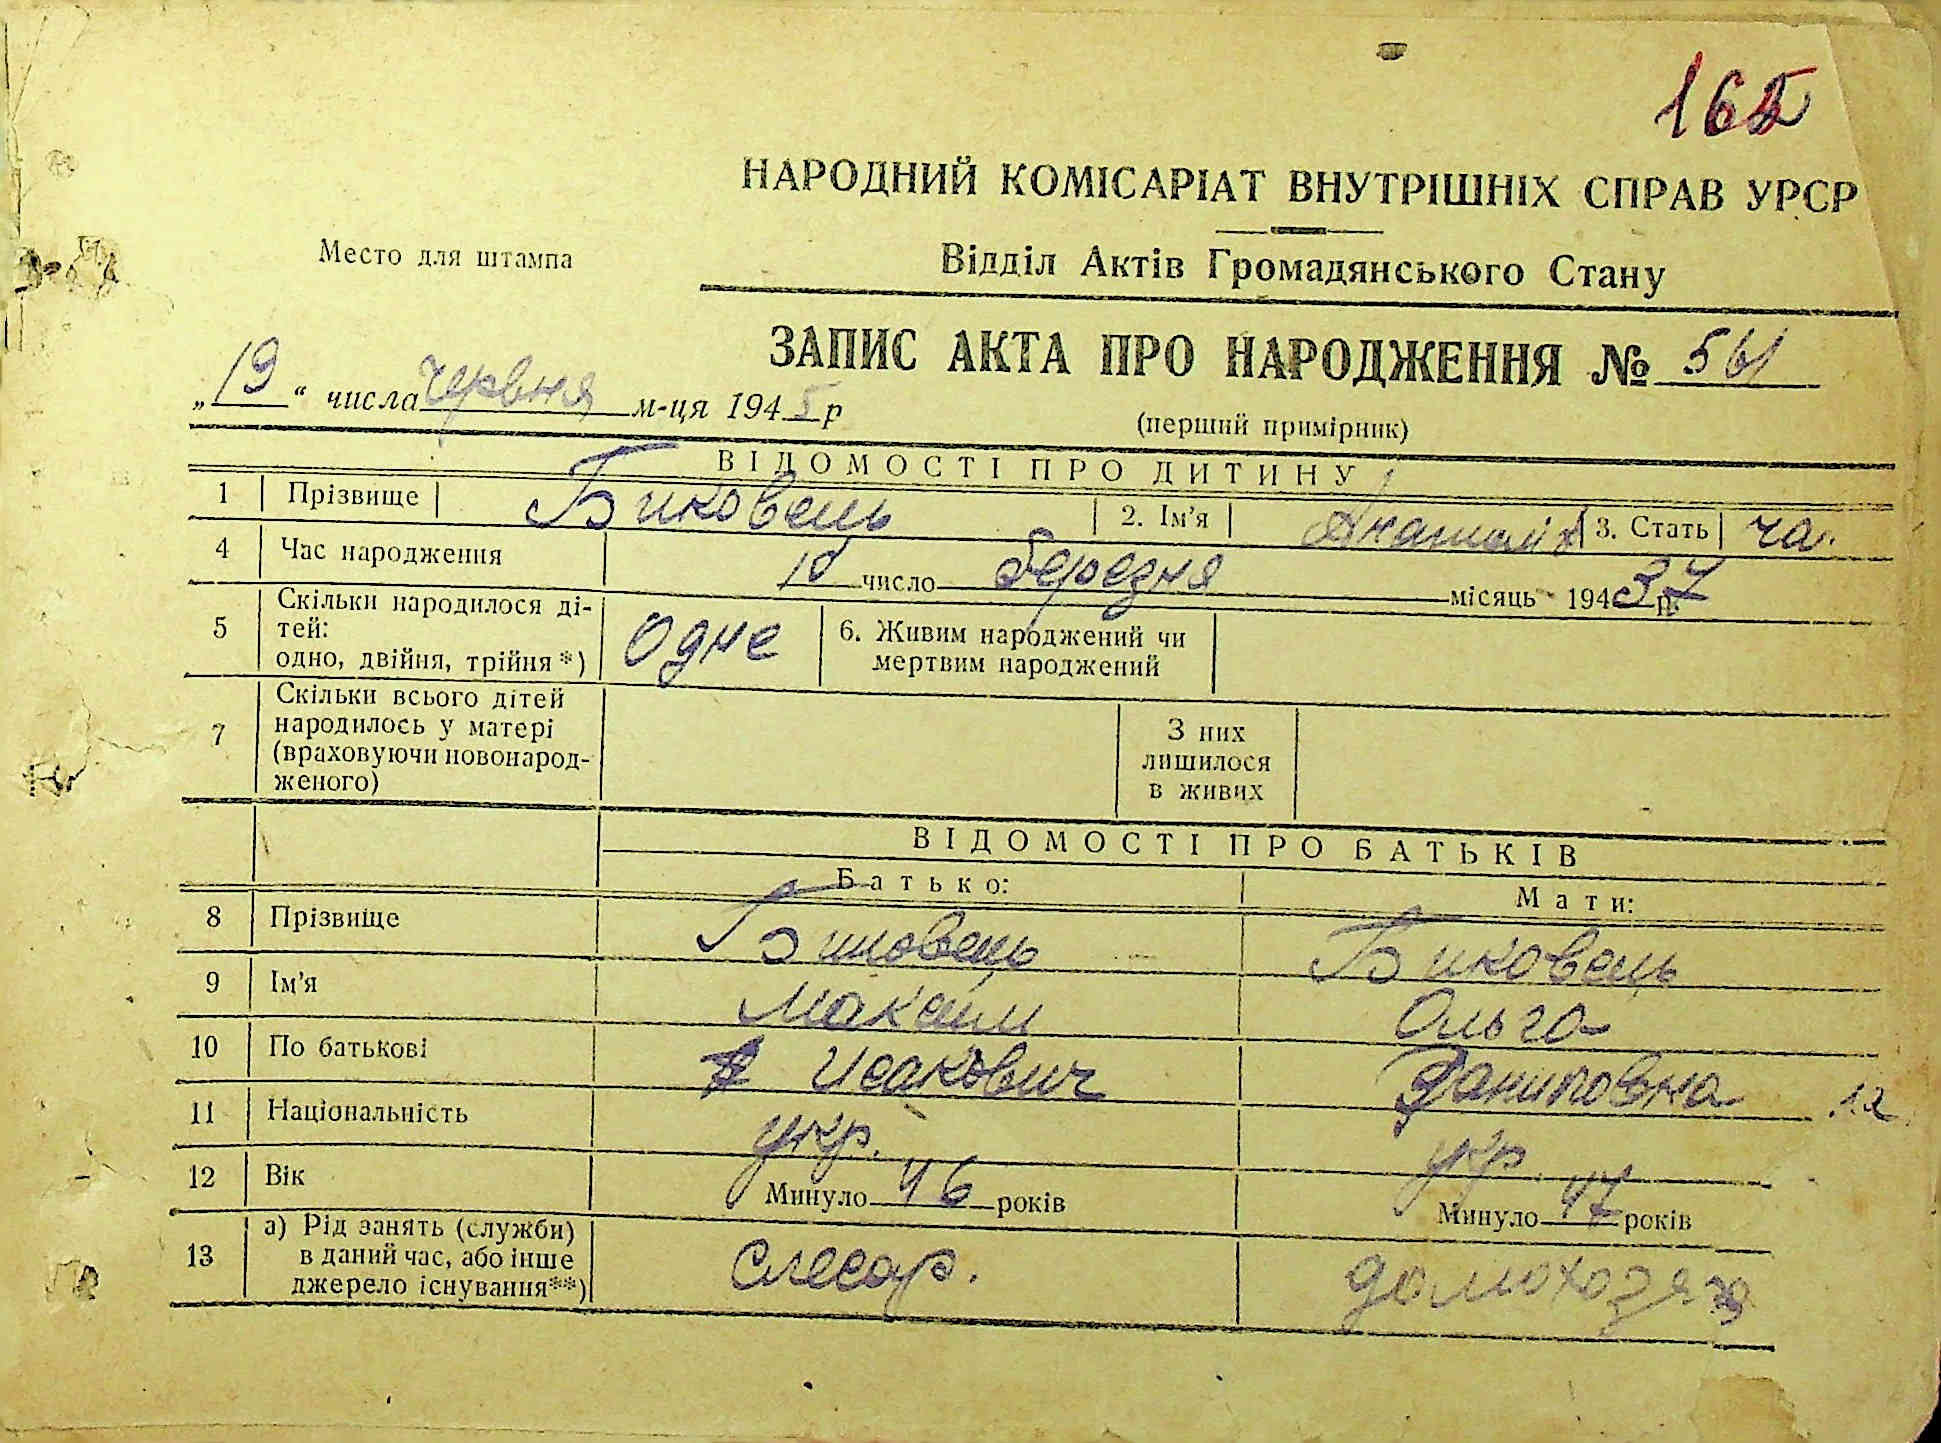 165
НАРОДНИЙ КОМІСАРІАТ ВНУТРІШНІХ СПРАВ УРСР
Место для штампа
Відділ Актів Громадянського Стану
ЗАПИС АКТА ПРО НАРОДЖЕННЯ № 561
„19“ числа червня м-ця 1945 р
(перший примірник)
ВІДОМОСТІ ПРО ДИТИНУ
1 Прізвище Биковець 2. Ім'я Анатолій 3. Стать ча.
4 Час народження 18 число березня місяць 1937 р.
5 Скільки народилося ді-
тей:
одно, двійня, трійня*) Одне
6. Живим народжений чи
мертвим народжений
7 Скільки всього дітей
народилось у матері
(враховуючи новонарод-
женого)
З них
лишилося
в живих
ВІДОМОСТІ ПРО БАТЬКІВ
Батько: Мати:
8 Прізвище Биковець Биковець
9 Ім'я Максим Ольга
10 По батькові Исакович Даниловна
11 Національність укр. укр. 12
12 Вік Минуло 46 років Минуло 47 років
13 а) Рід занять (служби)
в даний час, або інше
джерело існування**) Слесар. домохозяка